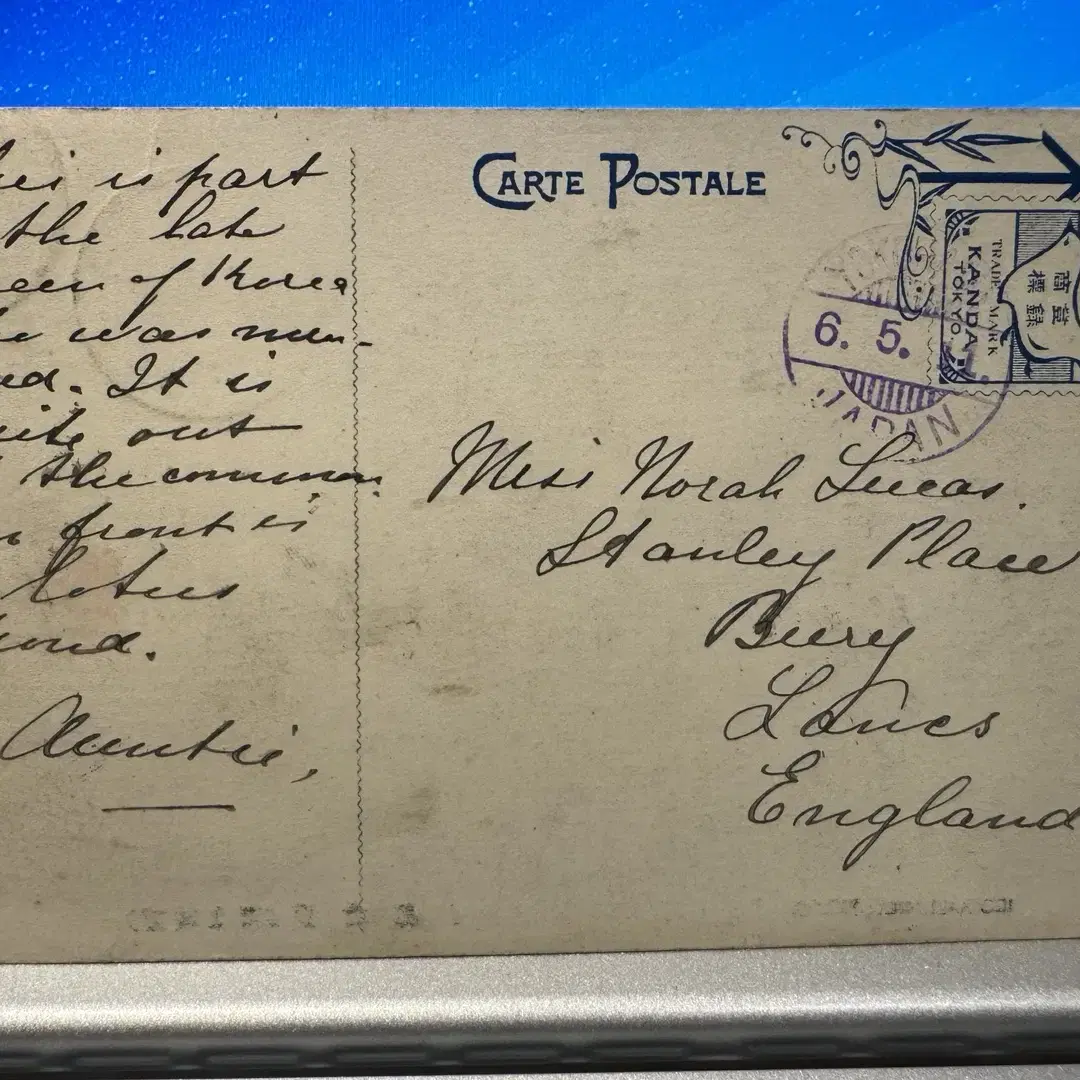 is part
the late
of Korea
was mur-
It is
out
the common
front is
lotus
Auntie,
CARTE POSTALE
TRADE MARK
KANDA
TOKYO.
商標
登録
6. 5.
JAPAN
Miss Norah Lucas.
Stanley Place
Bury
Lancs
England